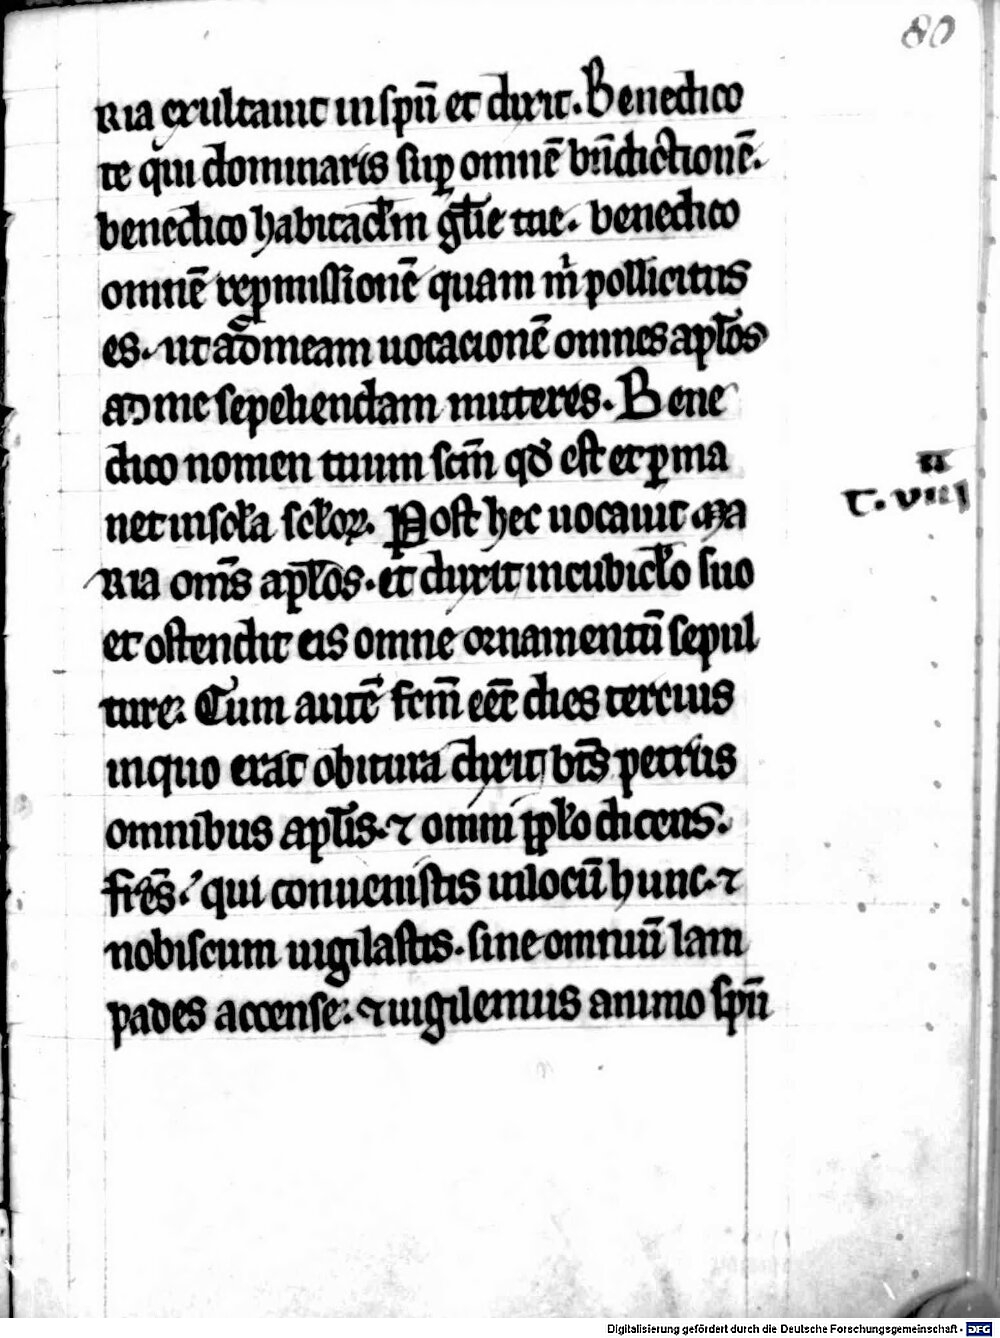 80
Ria exultauit in spū et dixit. Benedico
te qui dominaris sup omnē bn̄dictionē.
benedico habitaclm̄ gr̄e tue. benedico
omnē repmissionē quam m̄ pollicitus
es. ut ad meam uocacionē omnes apl̄os
ad me sepeliendam mitteres. Bene
dico nomen tuum scm̄ qd̄ est et pma
net in scl̄a scl̄oꝝ. Post hec uocauit Ma
ii
T. viii
Ria om̄s apl̄os. et dixit in cubicl̄o suo
et ostendit eis omne ornamentū sepul
ture. Cum autē fcm̄ eēt dies tercius
in quo erat obitura dixit bt̄s petrus
omnibus apl̄is. ⁊ omni ppl̄o dicens.
fr̄es. qui conuenistis in locū hunc. ⁊
nobiscum uigilastis. sint omniū lam
pades accense. ⁊ uigilemus animo spū
Digitalisierung gefördert durch die Deutsche Forschungsgemeinschaft - DFG